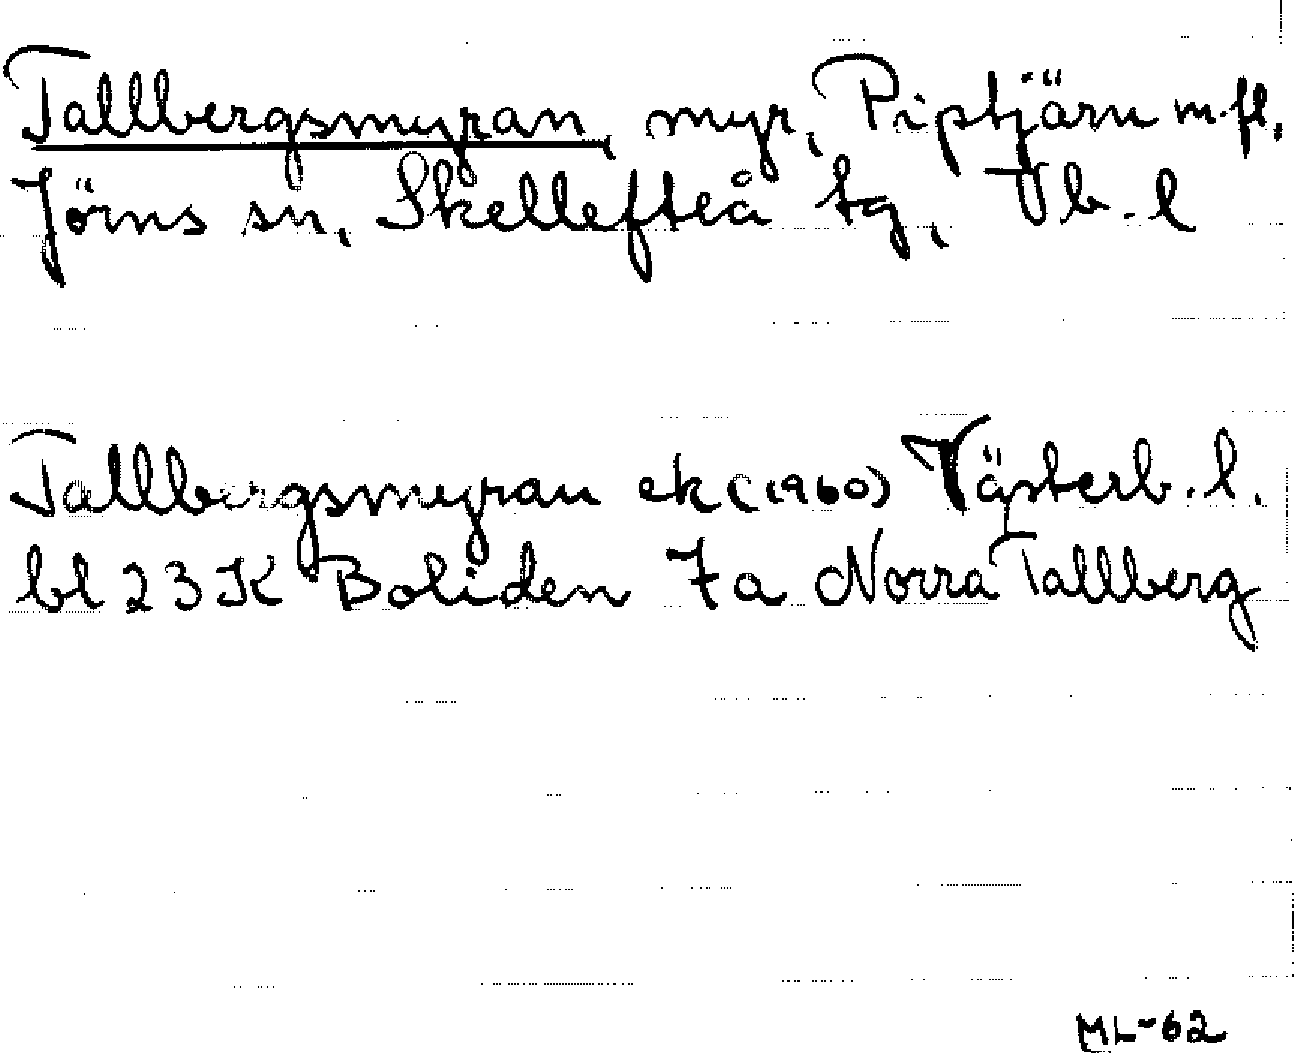 Tallbergsmyran, myr, Piptjärn m.fl.,
Jörns sn, Skellefteå tg, Vb.l
Tallbergsmyran ek (1960) Västerb.l.
bl 23 K Boliden 7a Norra Tallberg
ML-62